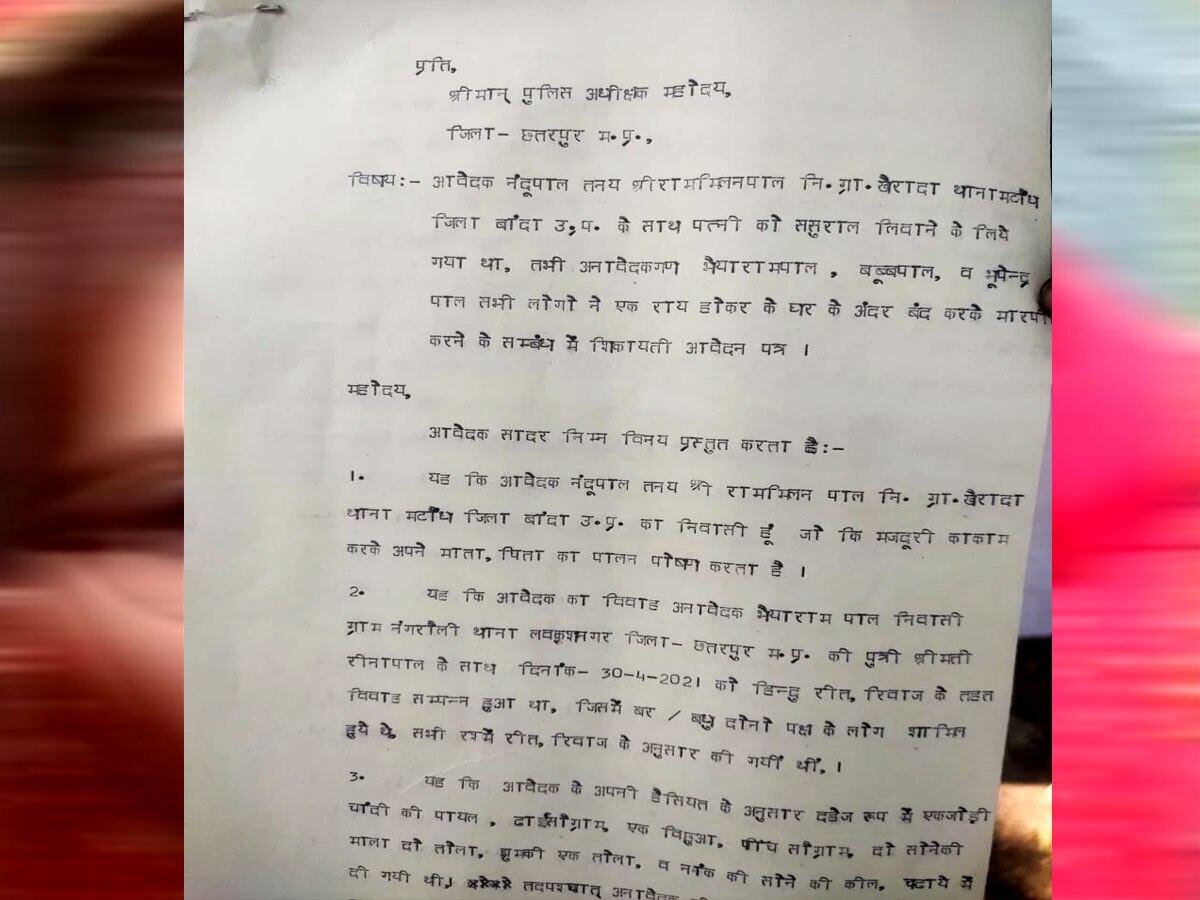 प्रति,
श्रीमान् पुलिस अधीक्षक महोदय,
जिला- छतरपुर म.प्र.,
विषय:- आवेदक नंदूपाल तनय श्रीराममिलनपाल नि.ग्रा.खैरादा थानामटौंध
जिला बांदा उ,प. के साथ पत्नी को ससुराल लिवाने के लिये
गया था, तभी अनावेदकगण भैयारामपाल , बब्बूपाल, व भूपेन्द्र
पाल सभी लोगो ने एक राय होकर के घर के अंदर बंद करके मारपी
करने के सम्बंध में शिकायती आवेदन पत्र ।
महोदय,
आवेदक सादर निम्न विनय प्रस्तुत करता है:-
1. यह कि आवेदक नंदूपाल तनय श्री राममिलन पाल नि. ग्रा.खैरादा
थाना मटौंध जिला बांदा उ.प्र. का निवासी हूं जो कि मजदूरी काकाम
करके अपने माता, पिता का पालन पोषण करता है ।
2. यह कि आवेदक का विवाह अनावेदक भैयाराम पाल निवासी
ग्राम नंगरौली थाना लवकुशनगर जिला- छतरपुर म.प्र. की पुत्री श्रीमती
रीनापाल के साथ दिनांक- 30-4-2021 को हिन्दु रीत, रिवाज के तहत
विवाह सम्पन्न हुआ था, जिसमें बर / बधु दोनो पक्ष के लोग शामिल
हुये थे, सभी रश्में रीत, रिवाज के अनुसार की गयीं थीं, ।
3. यह कि आवेदक के अपनी हैसियत के अनुसार दहेज रूप में एकजोड़ी
चांदी की पायल , ढाईसौग्राम, एक विछुआ, पांच सौग्राम, दो सोनेकी
माला दो तोला, झुमकी एक तोला, व नांक की सोने की कील, चढाये में
दी गयी थी, तदपश्चात् अनावेदक